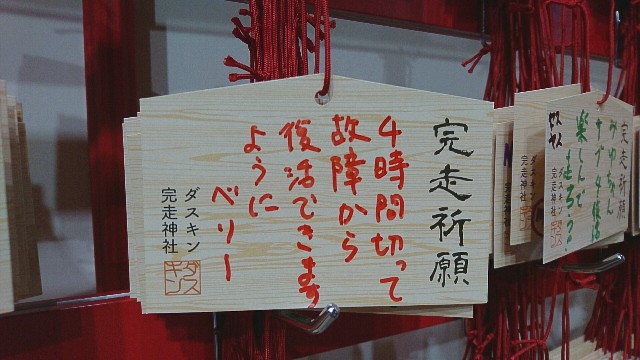 完走祈願
4時間切って
故障から
復活できます
ように
ベリー
ダスキン
完走神社
ダス
キン
完走祈願
みゆちゃん
サブ4復活
楽しんで
走ろう
ダスキン
完走神社